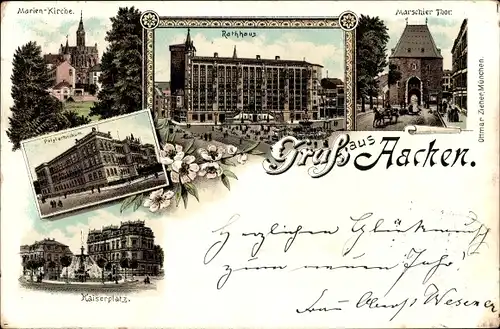 Marien-Kirche.
Rathhaus.
Marschier Thor.
Ottmar Zieher, München.
Polytechnikum.
Gruß aus Aachen.
Kaiserplatz.
Herzlichen Glückwunsch
zum neuen Jahr!
Frau